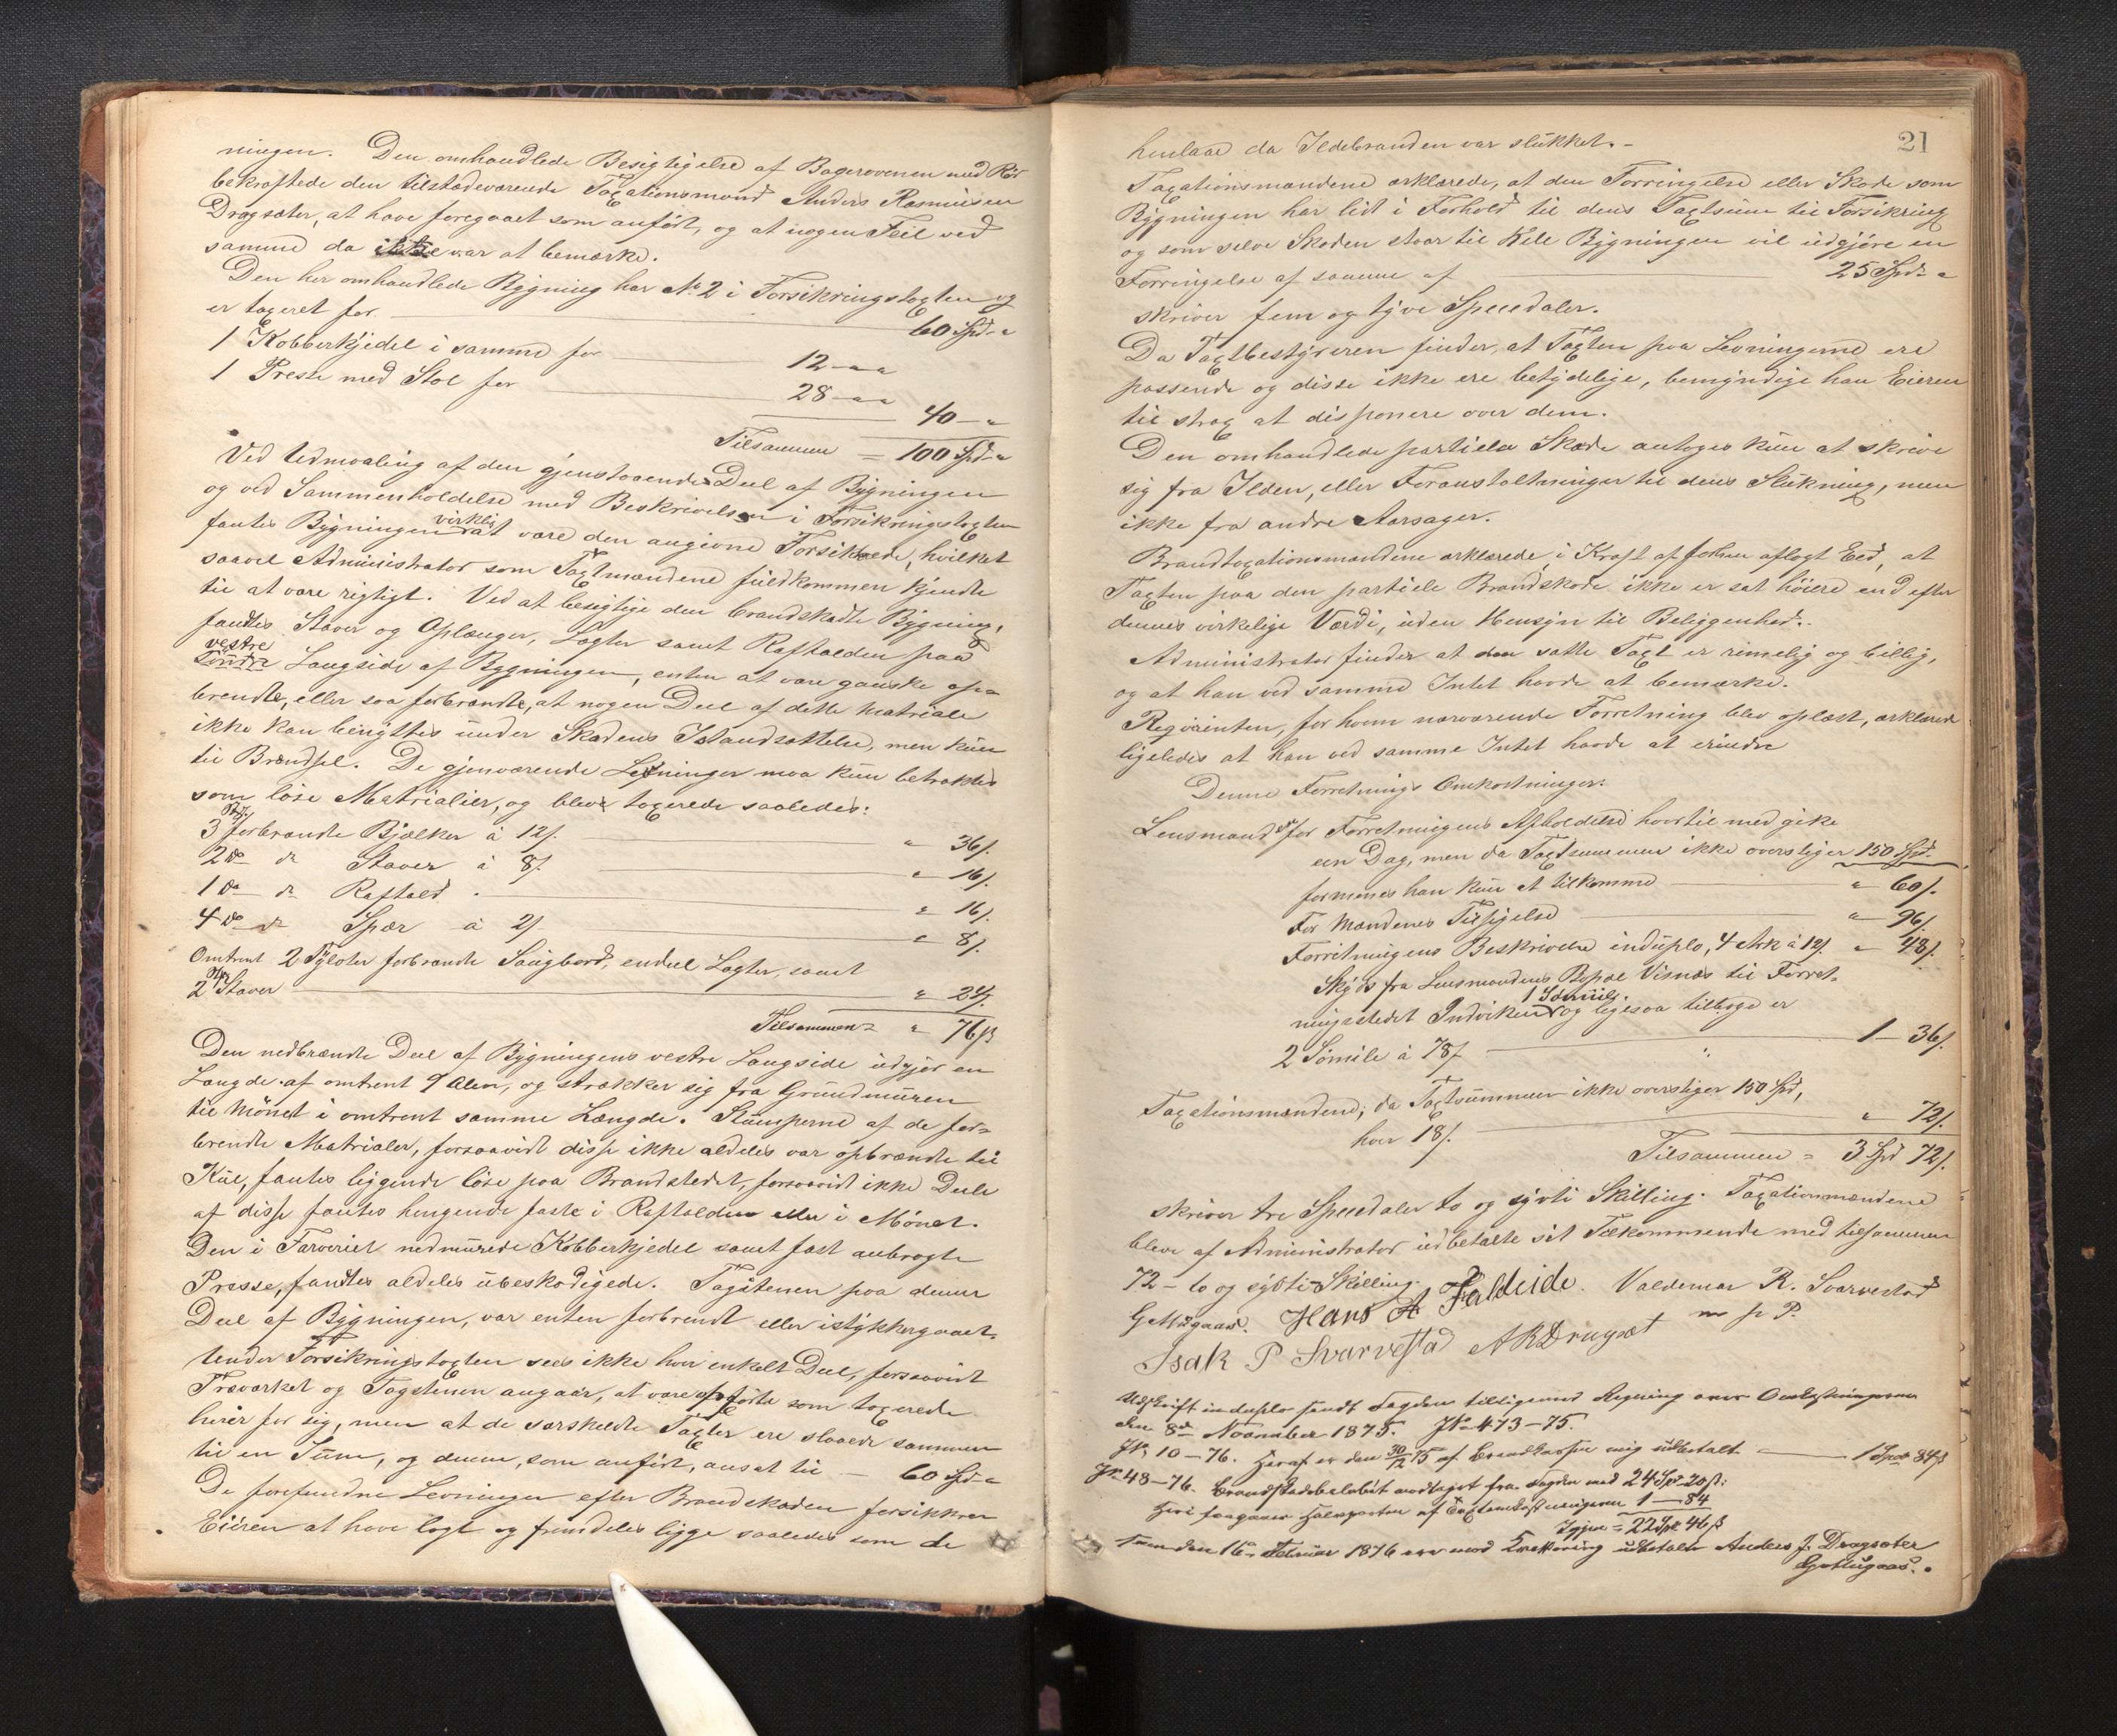 ningen. Den omhandlede Besigtigelse af Bagerovenen med Rør
bekræftede den tilstedeværende Taxationsmand Anders Rasmusen
Dragsæter, at have foregaaet som anført, og at nogen Feil ved
samme da ikke var at bemærke.
Den her omhandlede Bygning har No 2 i Forsikringstaxten og
er taxeret for 60 Spd "
1 Kobberkjedel i samme for 12 - " "
1 Presse med Stol for 28 - " "
40 - "
Tilsammen = 100 Spd "
Ved Udmaaling af den gjenstaaende Deel af Bygningen
og ved Sammenholdelse med Beskrivelsen i Forsikringstaxten
fantes Bygningen virkelig at være den angivne Forsikkrede, hvilket
saavel Administrator som Taxtmændene fuldkommen kjendte
til at være rigtigt. Ved at besigtige den brandskadte Bygning,
fandtes Staver og Oplænger, Lægter samt Raftolden paa
vestre
Søndre Langside af Bygningen, enten at være ganske op=
brendte, eller saa forbrændte, at nogen Deel af dette Matriale
ikke kan benyttes under Skadens Istandsættelse, men kun
til Brændsel. De gjenværende Levninger maa kun betraktes
som løse Matrialier, og bleve taxerede saaledes:
Stk.
3 forbrændte Bjælker à 12 ß. " 36 ß.
2 do do Staver à 8 ß " 16 ß.
1 do do Raftold . " 16 ß.
4 do do Spær à 2 ß " 8 ß.
Omtrent 2 Tylvter forbrændte Saugbord, endeel Lægter, samt
Stk
2 Staver
Tilsammen = " 76 ß
Den nedbrændte Deel af Bygningens vestre Langside udgjør en
Længde af omtrent 9 Alen, og strækker sig fra Grundmuren
til Mønet i omtrent samme Længde. Stumperne af de for=
brendte Matrialer, forsaavidt disse ikke aldeles var opbrændte til
Kul, fantes liggende løse paa Brandstedet, forsaavidt ikke Deele
af disse fantes hengende faste i Raftolden eller i Mønet.
Den i Farveriet nedmurede Kobberkjedel samt fast anbragte
Presse, fandtes aldeles ubeskadigede. Tagstenen paa denne
Deel af Bygningen, var enten forbrendt eller istykkergaaet.
Under Forsikringstaxten sees ikke hver enkelt Deel, forsaavidt
Træværket og Tagstenen angaar, at være opførte som taxerede
hver for sig, men at de særskildte Taxter ere slaaede sammen
til en Sum, og denne, som anført, ansat til — 60 Spd "
De forefundne Levninger efter Brandskaden forsikkrer
Eieren at have lagt og fremdeles ligge saaledes som de
21
henlaae da Ildebranden var slukket. -
Taxationsmændene erklærede, at den Forringelse eller Skade som
Bygningen har lidt i Forhold til dens Taxtsum til Forsikring
og som selve Skaden staar til Hele Bygningen vil udgjøre en
Forringelse af samme af 25 Spd "
skriver fem og tyve Speciedaler.
Da Taxtbestyreren finder, at Taxten paa Levningerne ere
passende og disse ikke ere betydelige, bemyndige han Eieren
til strax at disponere over dem.
Den omhandlede partielle Skade antoges kun at skrive
sig fra Ilden, eller Foranstaltninger til dens Slukning, men
ikke fra andre Aarsager.
Brandtaxationsmændene erklærede, i Kraft af forhen aflagt Eed, at
Taxten paa den partiele Brandskade ikke er sat høiere end efter
dennes virkelige Værdi, uden Hensyn til Beliggenhed.
Administrator finder at den satte Taxt er rimelig og billig,
og at han ved samme Intet havde at bemærke.
Reqvirenten, for hvem nærværende Forretning blev oplæst, erklærede
ligeledes at han ved samme Intet havde at erindre
Denne Forretnings Omkostninger:
Lensmanden for Forretningens Afholdelse hvortil medgikk
een Dag, men da Taxtsummen ikke overstiger 150 Spd.
formenes han kun at tilkomme " 60 ß.
For Mændenes Tilsigelse " 96 ß.
Forretningens Beskrivelse induplo, 4 Ark à 12 ß. " 48 ß.
Skyds fra Lensmandens Bopæl Visnæs til Forret-
1 Sømiil.
ningsstedet Indviken og ligesaa tilbage er
2 Sømile à 78 ß 1 - 36 ß.
Taxationsmændene, da Taxtsummen ikke overstiger 150 Spd,
hver 18 ß. " 72 ß.
Tilsammen = 3 Spd 72 ß.
skriver tre Speciedaler to og sytti Skilling. Taxationsmændene
bleve af Administrator udbetalte sit Tilkommende med tilsammen
72 - to og sytti - Skilling.
Hans A Faldeide. Valdemar R. Svarvestad
m p P.
Isak P Svarvestad A R Dragsæt
Udskrift induplo sendt Fogden tilligemed Regning over Omkostningerne
den 8de November 1875. JNo 473-75.
JNo 10-76. Heraf er den 30/12 75 af Brandkassen mig udbetalt 1 Spd 84 ß
JNo 48-76. Brandskadebeløbet modtaget fra Fogden med 24 Spd 20 ß:
Heri fragaaer Halvparten af Taxtomkostningerne 1 — 84
Igjen = 22 Spd 46 ß
den 16de Februar 1876 mod Kvittering udbetalt Anders J. Dragsæter